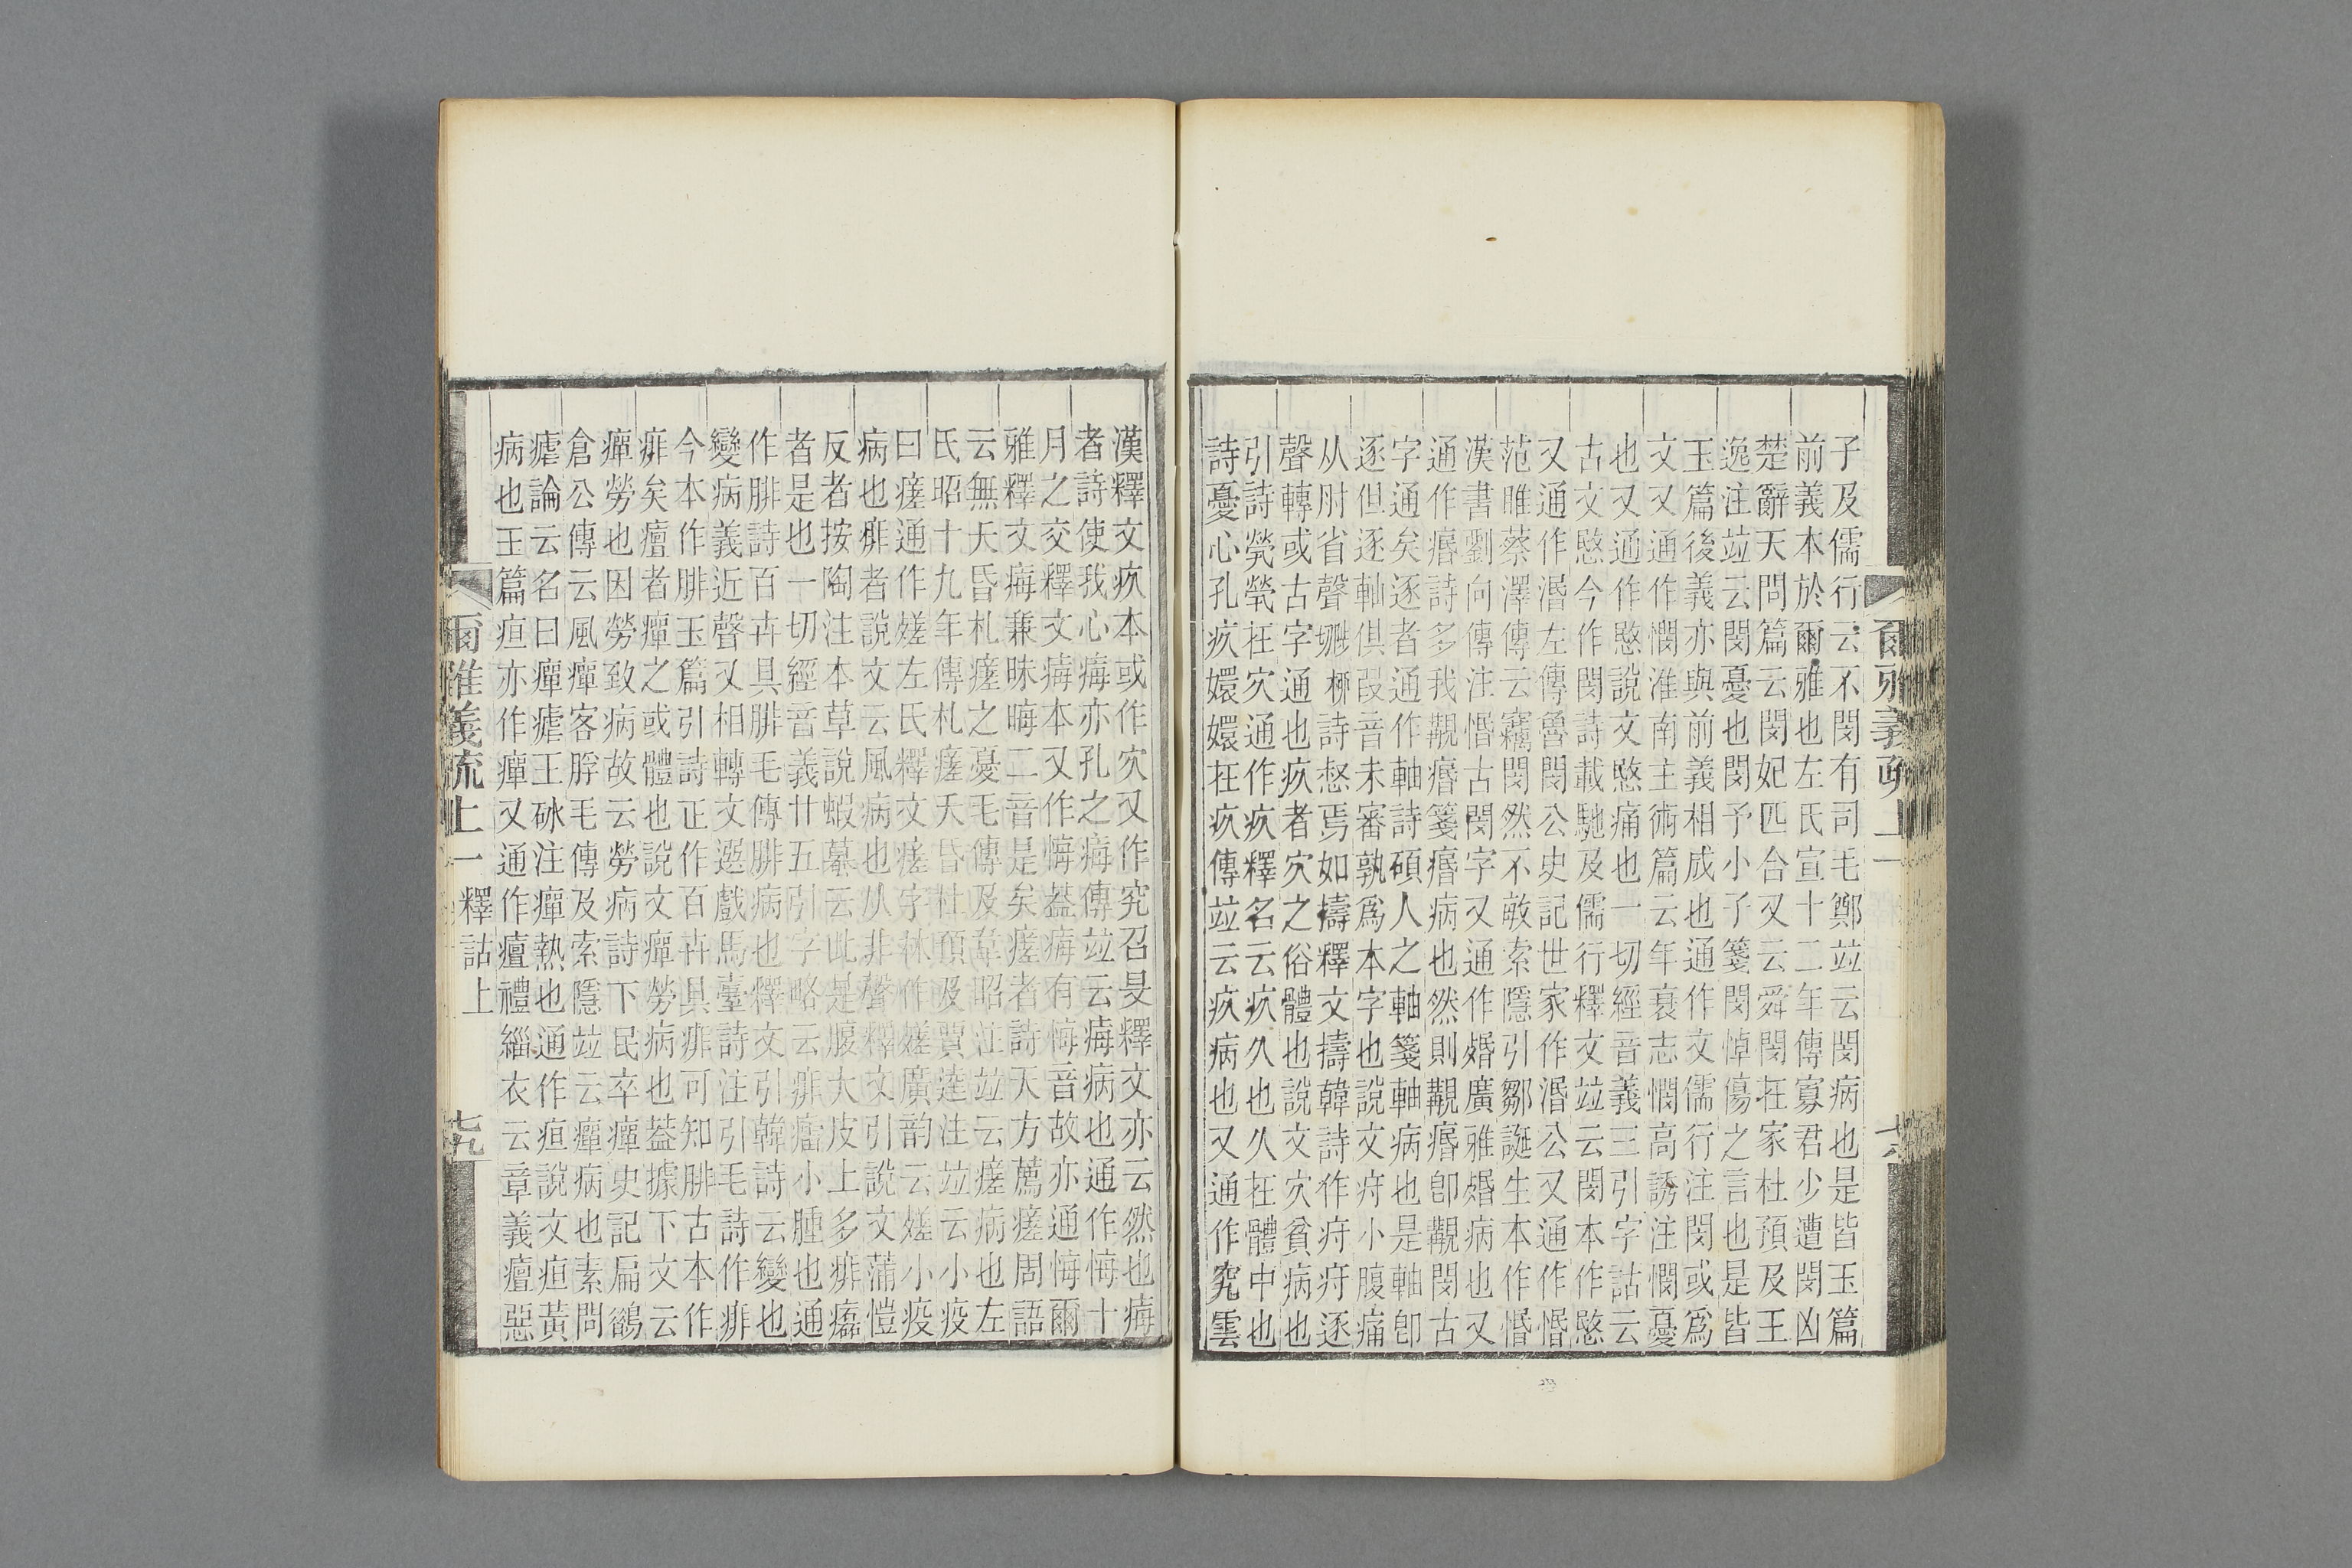 子及儒行云不閔有司毛鄭竝云閔病也是皆玉篇
前義本於爾雅也左氏宣十二年傳寡君少遭閔凶
楚辭天問篇云閔妃匹合又云舜閔在家杜預及王
逸注竝云閔憂也閔予小子箋閔悼傷之言也是皆
玉篇後義亦與前義相成也通作文儒行注閔或為
文又通作憫淮南主術篇云年衰志憫高誘注憫憂
也又通作愍說文愍痛也一切經音義三引字詁云
古文愍今作閔詩載馳及儒行釋文竝云閔本作愍
又通作湣左傳魯閔公史記世家作湣公又通作惽
范雎蔡澤傳云竊閔然不敏索隱引鄒誕生本作惽
漢書劉向傳注惽古閔字又通作㛰廣雅㛰病也又
通作痻詩多我覯痻箋痻病也然則覯痻卽覯閔古
字通矣逐者通作軸詩碩人之軸箋軸病也是軸卽
逐但逐軸俱叚音未審孰為本字也說文疛小腹痛
从肘省聲㽿詩惄焉如擣釋文擣韓詩作疛疛逐
聲轉或古字通也疚者㝌之俗體也說文㝌貧病也
引詩煢煢在㝌通作疚釋名云疚久也久在體中也
詩憂心孔疚嬛嬛在疚傳竝云疚病也又通作究雲
漢釋文疚本或作㝌又作究召旻釋文亦云然也痗
者詩使我心痗亦孔之痗傳竝云痗病也通作悔十
月之交釋文痗本又作悔葢痗有悔音故亦通悔爾
雅釋文痗兼昧晦二音是矣瘥者詩天方薦瘥周語
云無夭昏札瘥之憂毛傳及韋昭注竝云瘥病也左
氏昭十九年傳札瘥夭昏杜預及賈逵注竝云小疫
曰瘥通作㽨左氏釋文瘥字林作㽨廣韵云㽨小疫
病也痱者說文云風病也从非聲釋文引說文蒲愷
反者按陶注本草說蝦蟇云此是腹大皮上多痱癗
者是也一切經音義廿五引字略云痱癗小腫也通
作腓詩百卉具腓毛傳腓病也釋文引韓詩云變也
變病義近聲又相轉文選戲馬臺詩注引毛詩作痱
今本作腓玉篇引詩正作百卉具痱可知腓古本作
痱矣癉者癉之或體也說文癉勞病也葢據下文云
癉勞也因勞致病故云勞病詩下民卒癉史記扁鵲
倉公傳云風癉客脬毛傳及索隱竝云癉病也素問
瘧論云名曰癉瘧王砅注癉熱也通作疸說文疸黃
病也玉篇疸亦作癉又通作癉禮緇衣云章義癉惡
爾雅義疏上一 釋詁上 七九